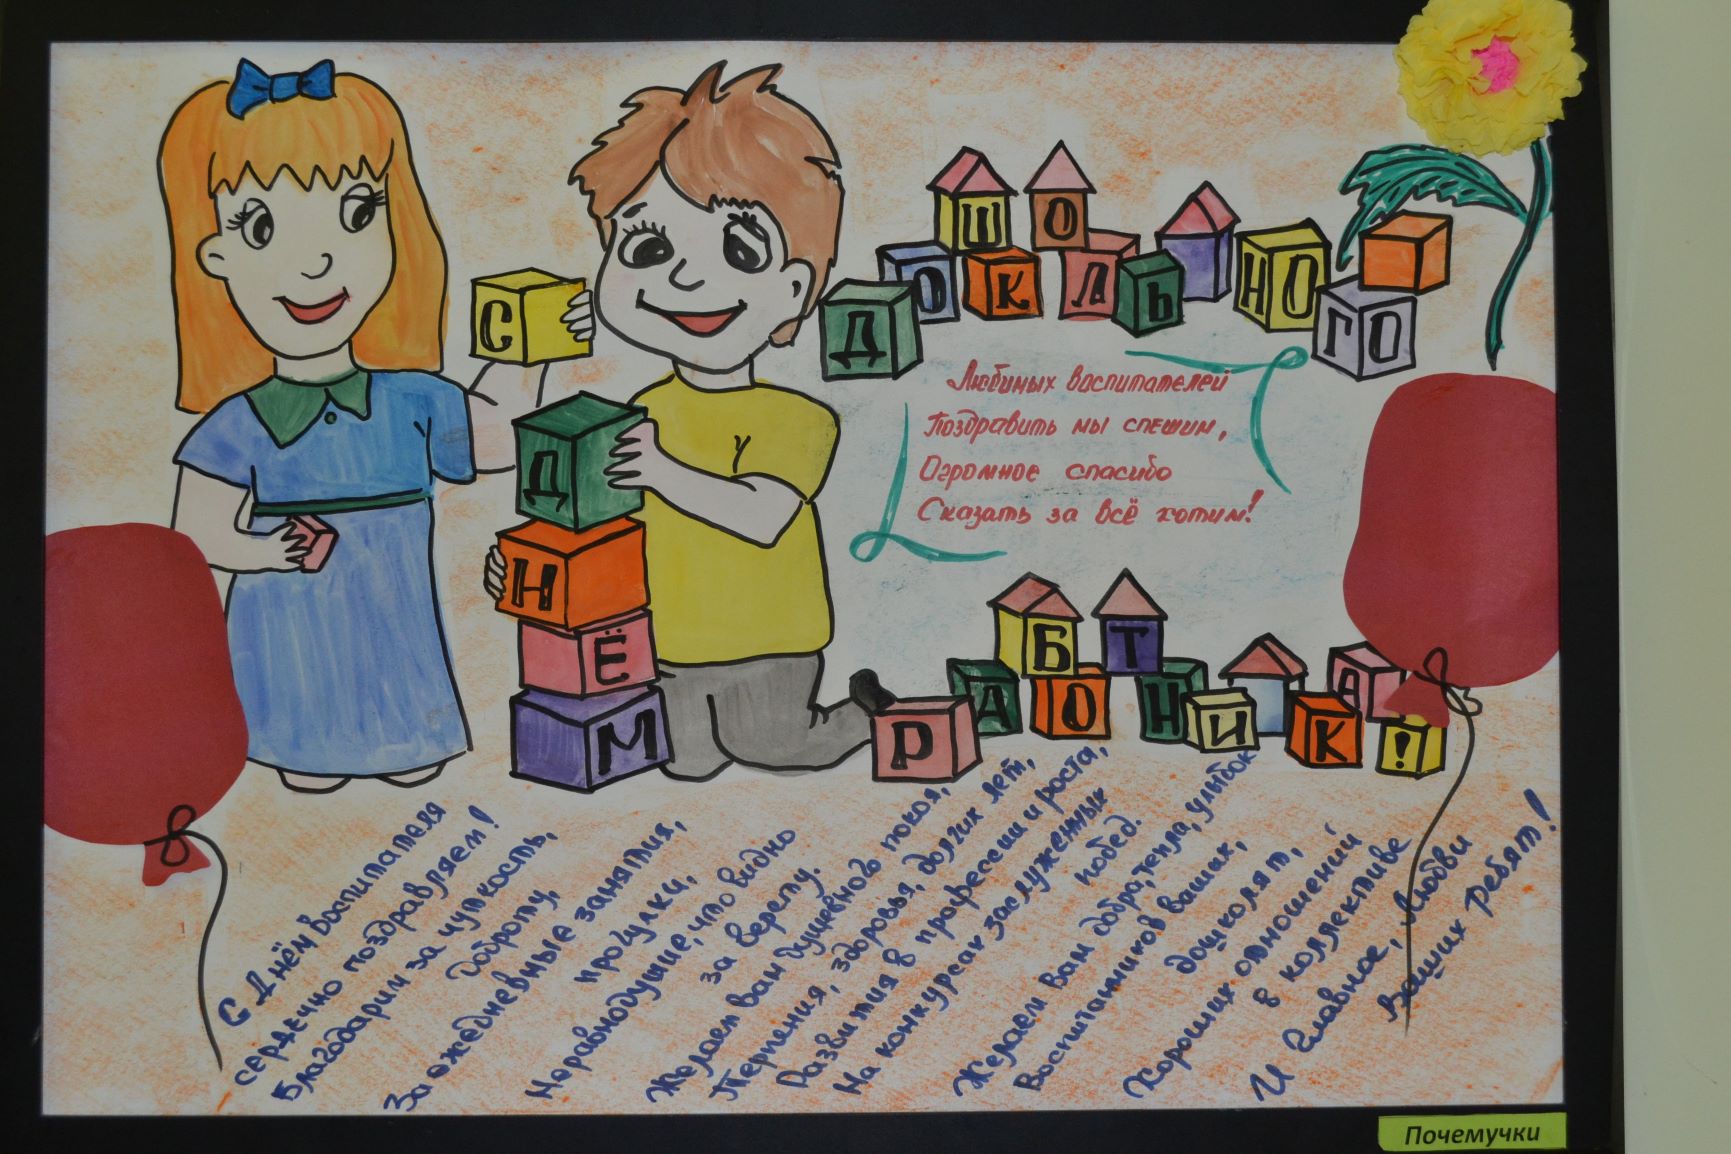 С
Д
Н
Ё
М
ДОШКОЛЬНОГО
Любимых воспитателей
Поздравить мы спешим,
Огромное спасибо
Сказать за всё хотим!
РАБОТНИКА!
С Днём воспитателя
сердечно поздравляем!
Благодарим за чуткость,
доброту,
За ежедневные занятия,
прогулки,
Неравнодушие, что видно
за версту.
Желаем вам душевного покоя,
Терпения, здоровья, долгих лет,
Развития в профессии и роста,
На конкурсах заслуженных
побед.
Желаем вам добра, тепла, улыбок
Воспитанников ваших,
дошколят,
Хороших отношений
в коллективе
И главное, любви
ваших ребят!
Почемучки